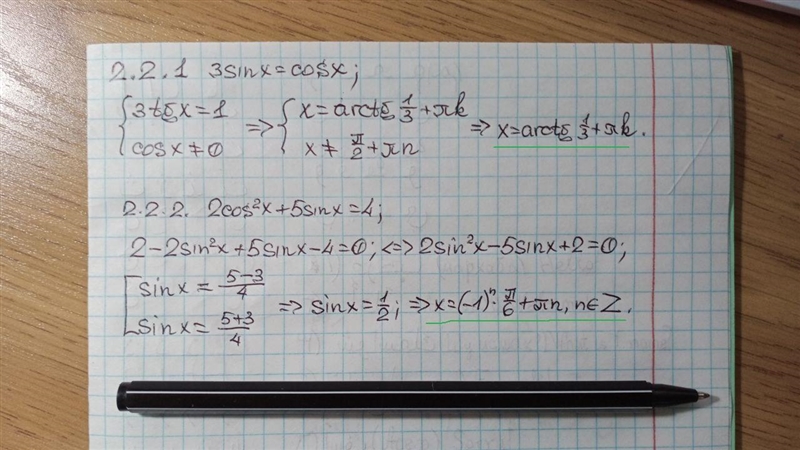 2.2.1 3sinx=cosx;
{3tgx=1 cosx≠0 => {x=arctg 1/3+πk x≠ π/2+πn => x=arctg 1/3+πk.
2.2.2. 2cos²x+5sinx=4;
2-2sin²x+5sinx-4=0; <=> 2sin²x-5sinx+2=0;
[sinx= (5-3)/4 sinx= (5+3)/4 => sinx=1/2; => x=(-1)ⁿ· π/6+πn, n∈Z.